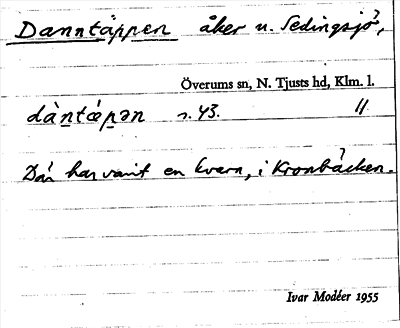 Danntäppen åker u. Sedingsjö,
Överums sn, N. Tjusts hd, Klm. l.
dàntæpən s. 43. 11
Där har varit en kvarn, i Kronbäcken.
Ivar Modéer 1955